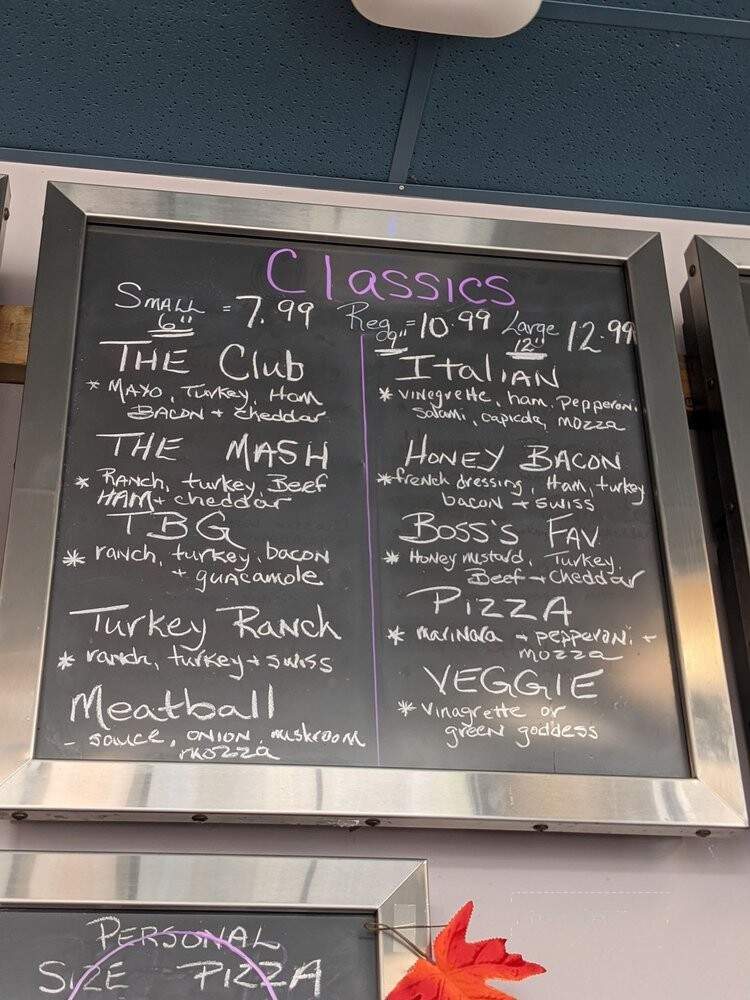 Classics
SMALL 6" = 7.99 Reg 9" = 10.99 Large 12" 12.99
THE Club
* MAYO, Turkey, Ham
BACON + cheddar
THE MASH
* RANCH, turkey, Beef
HAM + cheddar
TBG
* ranch, turkey, bacon
+ guacamole
Turkey RANCH
* ranch, turkey + swiss
Meatball
- sauce, ONION, mushroom
mozza
ItaliAN
* vinegrette, ham, pepperoni
Salami, capicola, mozza
HONEY BACON
* french dressing, Ham, turkey
bacon + swiss
BOSS'S FAV.
* Honey mustard, Turkey,
Beef + Cheddar
PIZZA
* mariNara + pepperoni +
mozza
VEGGIE
* vinagrette or
green goddess
PERSONAL
SIZE PIZZA